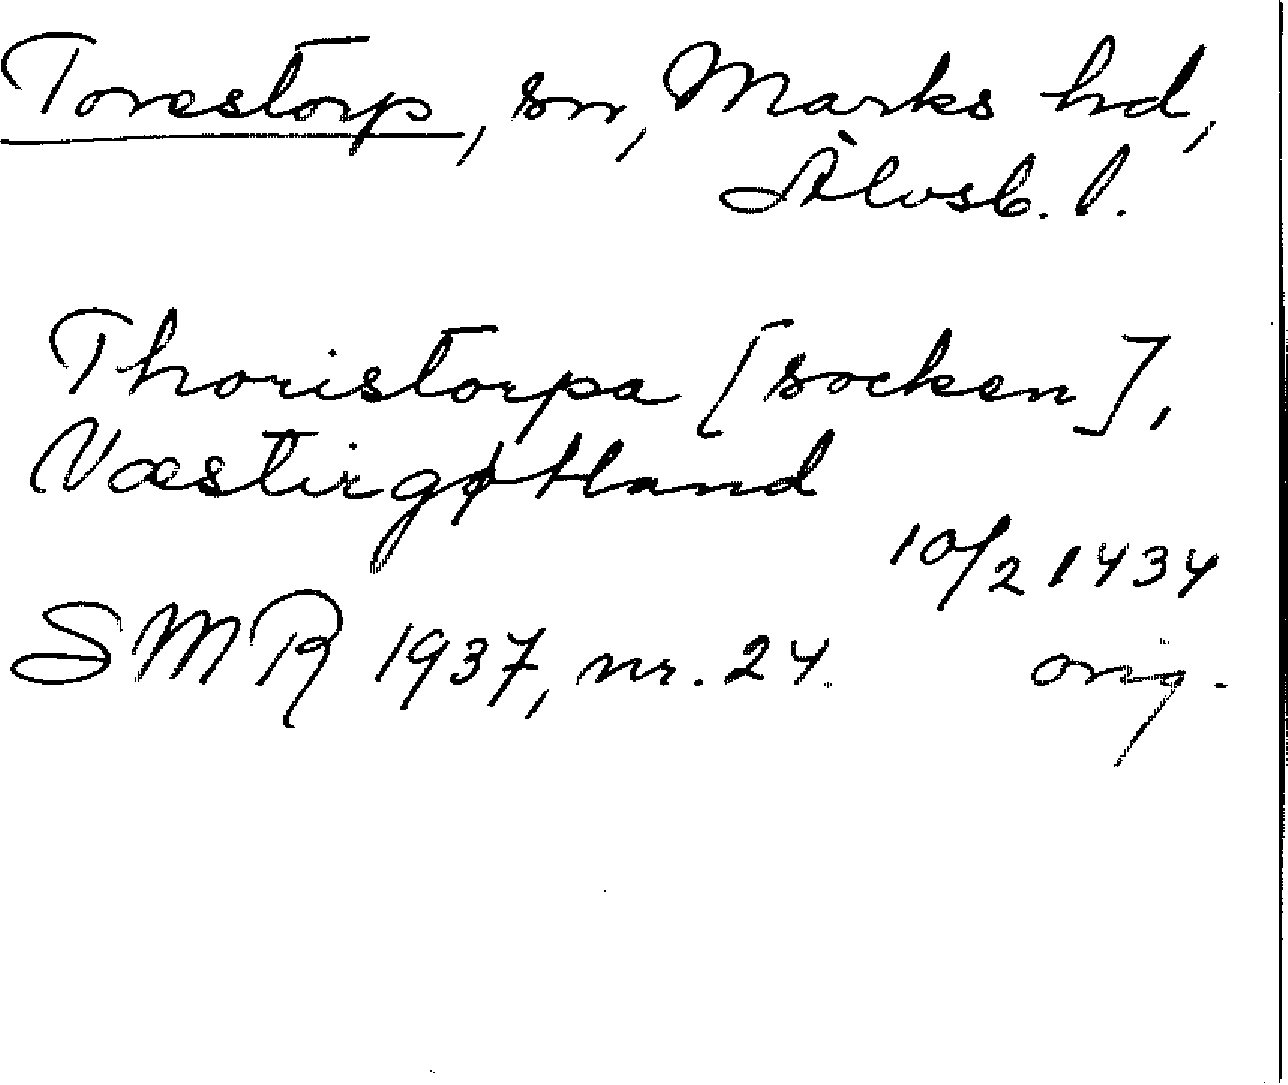 Torestorp, sn, Marks hd,
Älvsb. l.
Thoristorpa [socken],
Væstirgøtland
10/2 1434
SMR 1937, nr. 24. orig.